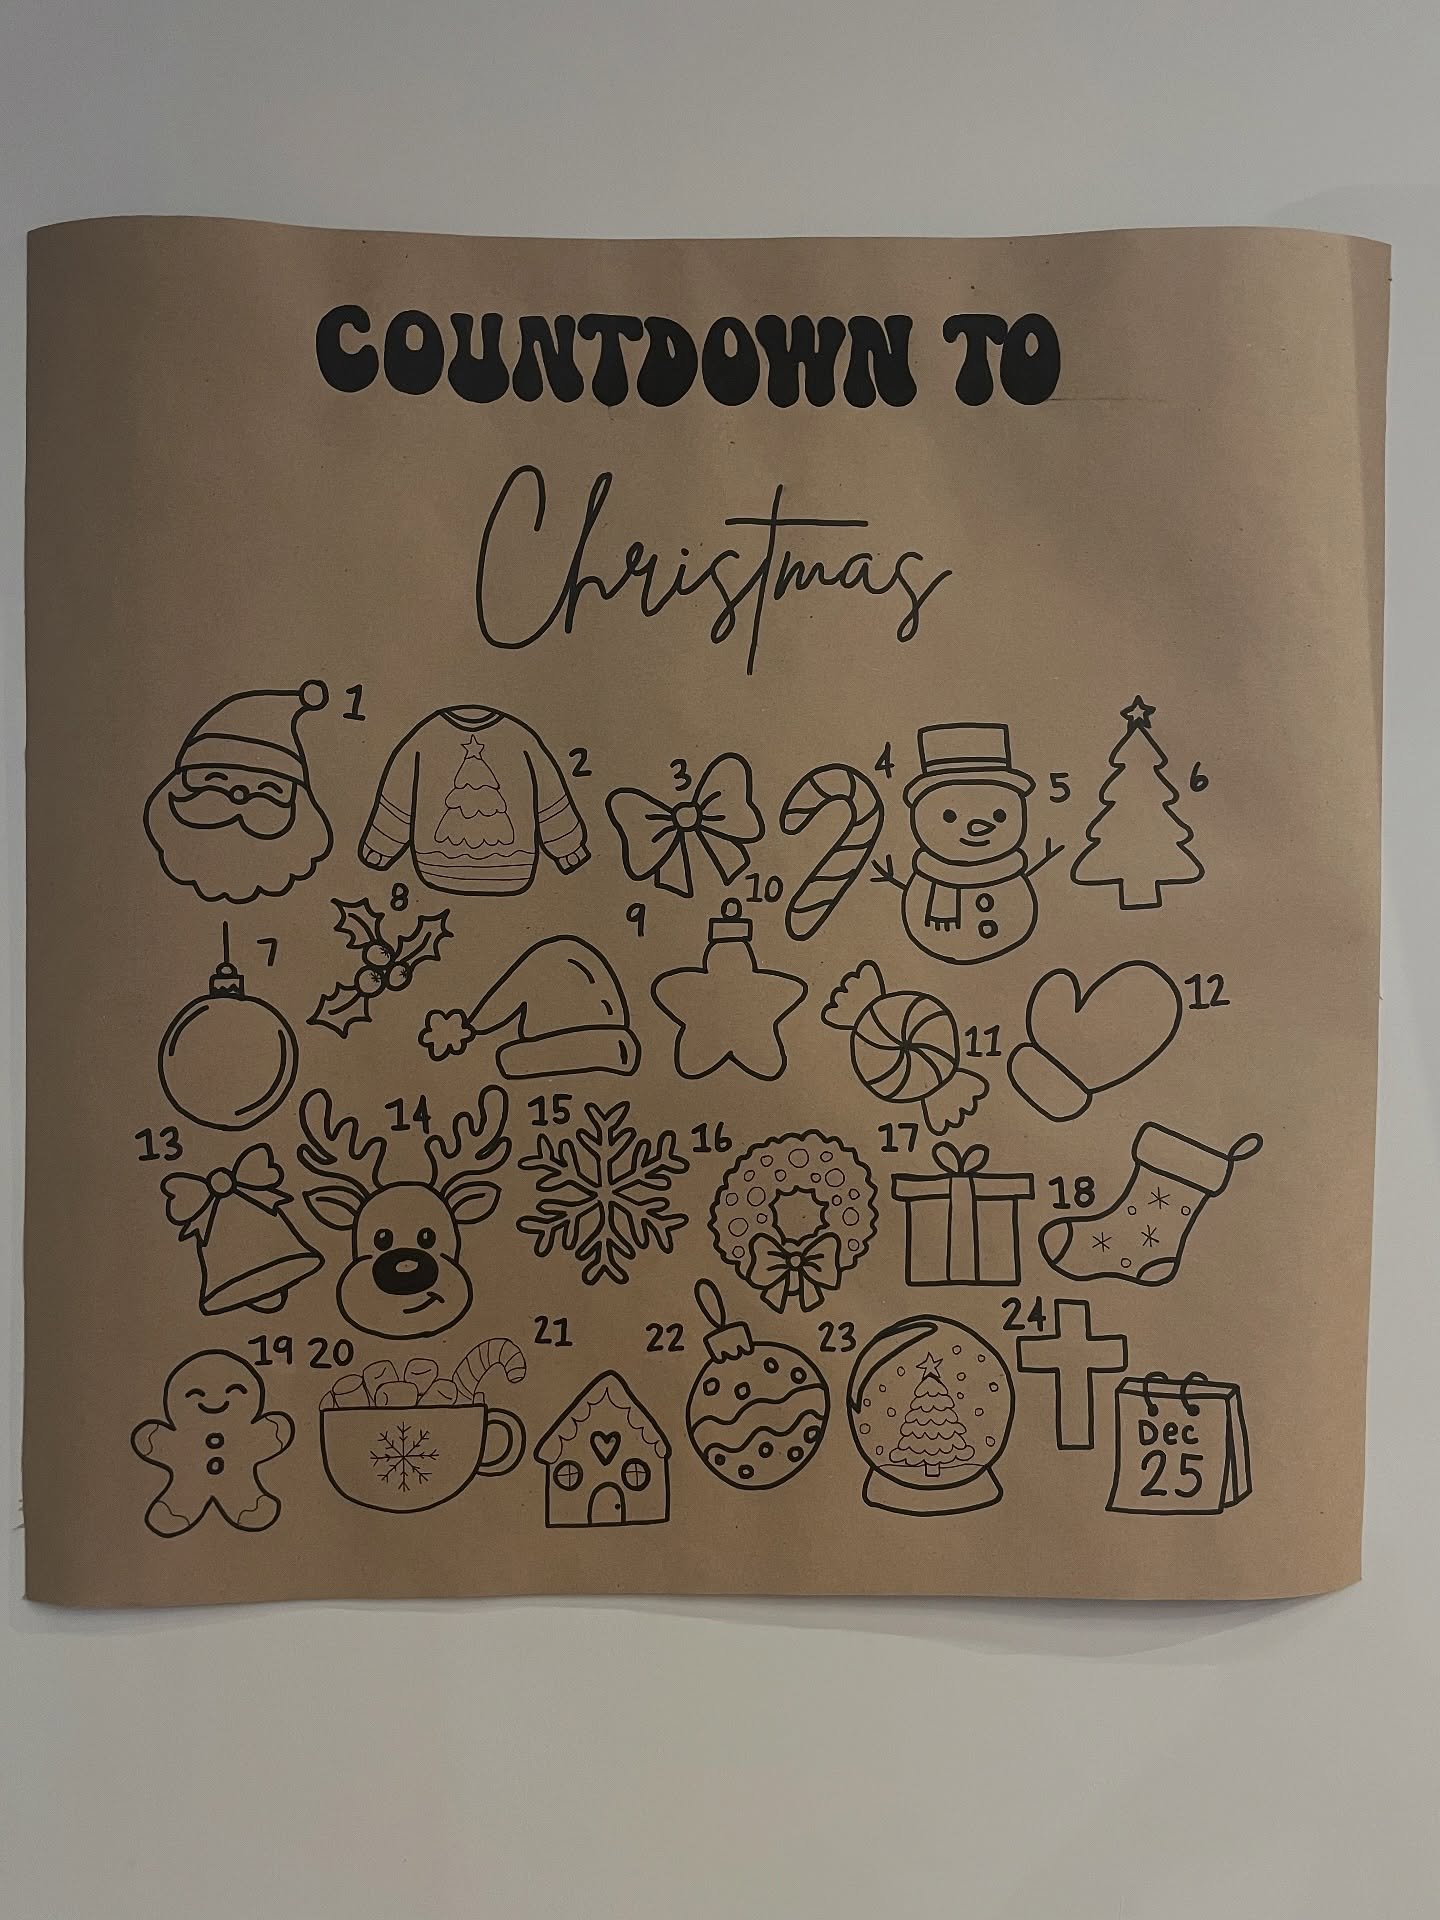 COUNTDOWN TO
Christmas
1 2 3 4 5 6
7 8 9 10 11 12
13 14 15 16 17 18
19 20 21 22 23 24
Dec
25